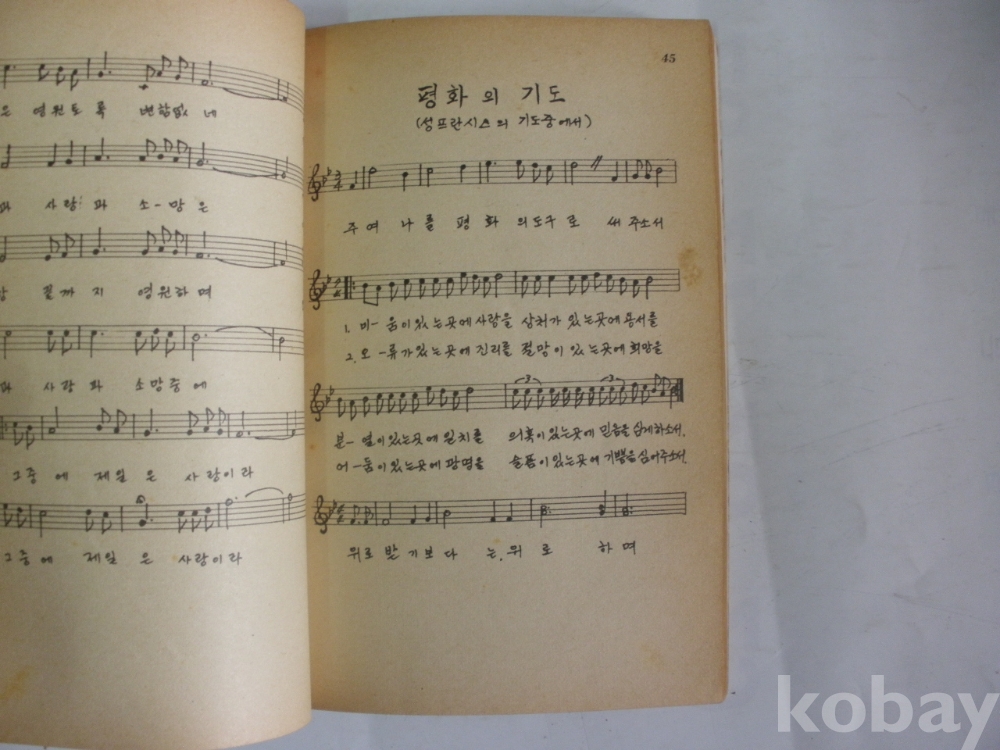 은 영원토록 변함없네
사랑과 소-망은
끝까지 영원하며
사랑과 소망중에
그중에 제일은 사랑이라
그중에 제일은 사랑이라
45
평화의 기도
(성프란시스의 기도중에서)
주여 나를 평화의도구로 써주소서
1. 미-움이있는곳에사랑을 상처가있는곳에용서를
2. 오-류가있는곳에진리를 절망이있는곳에희망을
분-열이있는곳에일치를 의혹이있는곳에믿음을심게하소서.
어-둠이있는곳에광명을 슬픔이있는곳에기쁨을심어주소서.
위로받기보다는,위로하며
kobay